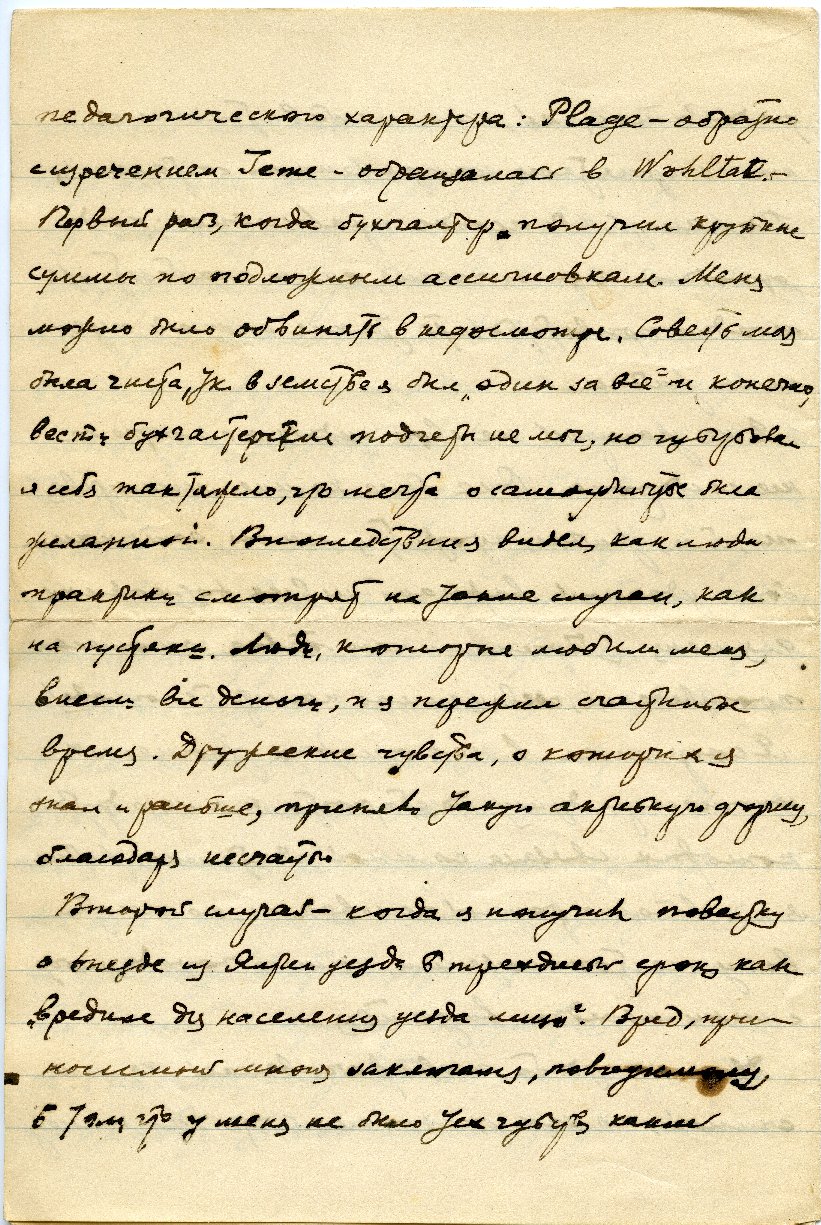 педагогического характера: Plage – обратно
изречением Гете – обращалась в Wohltat. –
Первый раз, когда бухгалтер получил крупные
суммы по подложным ассигновкам. Меня
можно было обвинять в недосмотре. Совесть моя
была чиста, т.к. в земстве я был „один за все" и конечно,
вести бухгалтерские подчеты не мог, но чувствовал
я себя так тяжело, что мечта о самоубийстве была
желанной. Впоследствии я видел, как люди
практики смотрят на такие случаи, как
на пустяки. Люди, которые любили меня,
внесли все деньги, и я пережил счастливое
время. Дружеские чувства, о которых я
знал и раньше, приняло такую активную форму,
благодаря несчастью
Второй случай – когда я получил повестку
о выезде из Ялты уезда в трехдневный срок, как
„вредное для населения уезда лицо". Вред, при-
носимый мною заключался, повидимому,
в том что у меня не было тех чувств какие